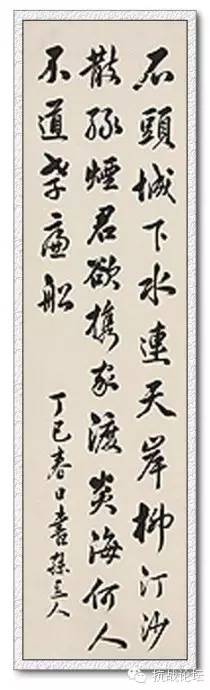 石頭城下水連天岸柳汀沙
散綠煙君欲攜家渡炎海何人
不道孝廉船
丁巳春日書孫立人
抗战论坛